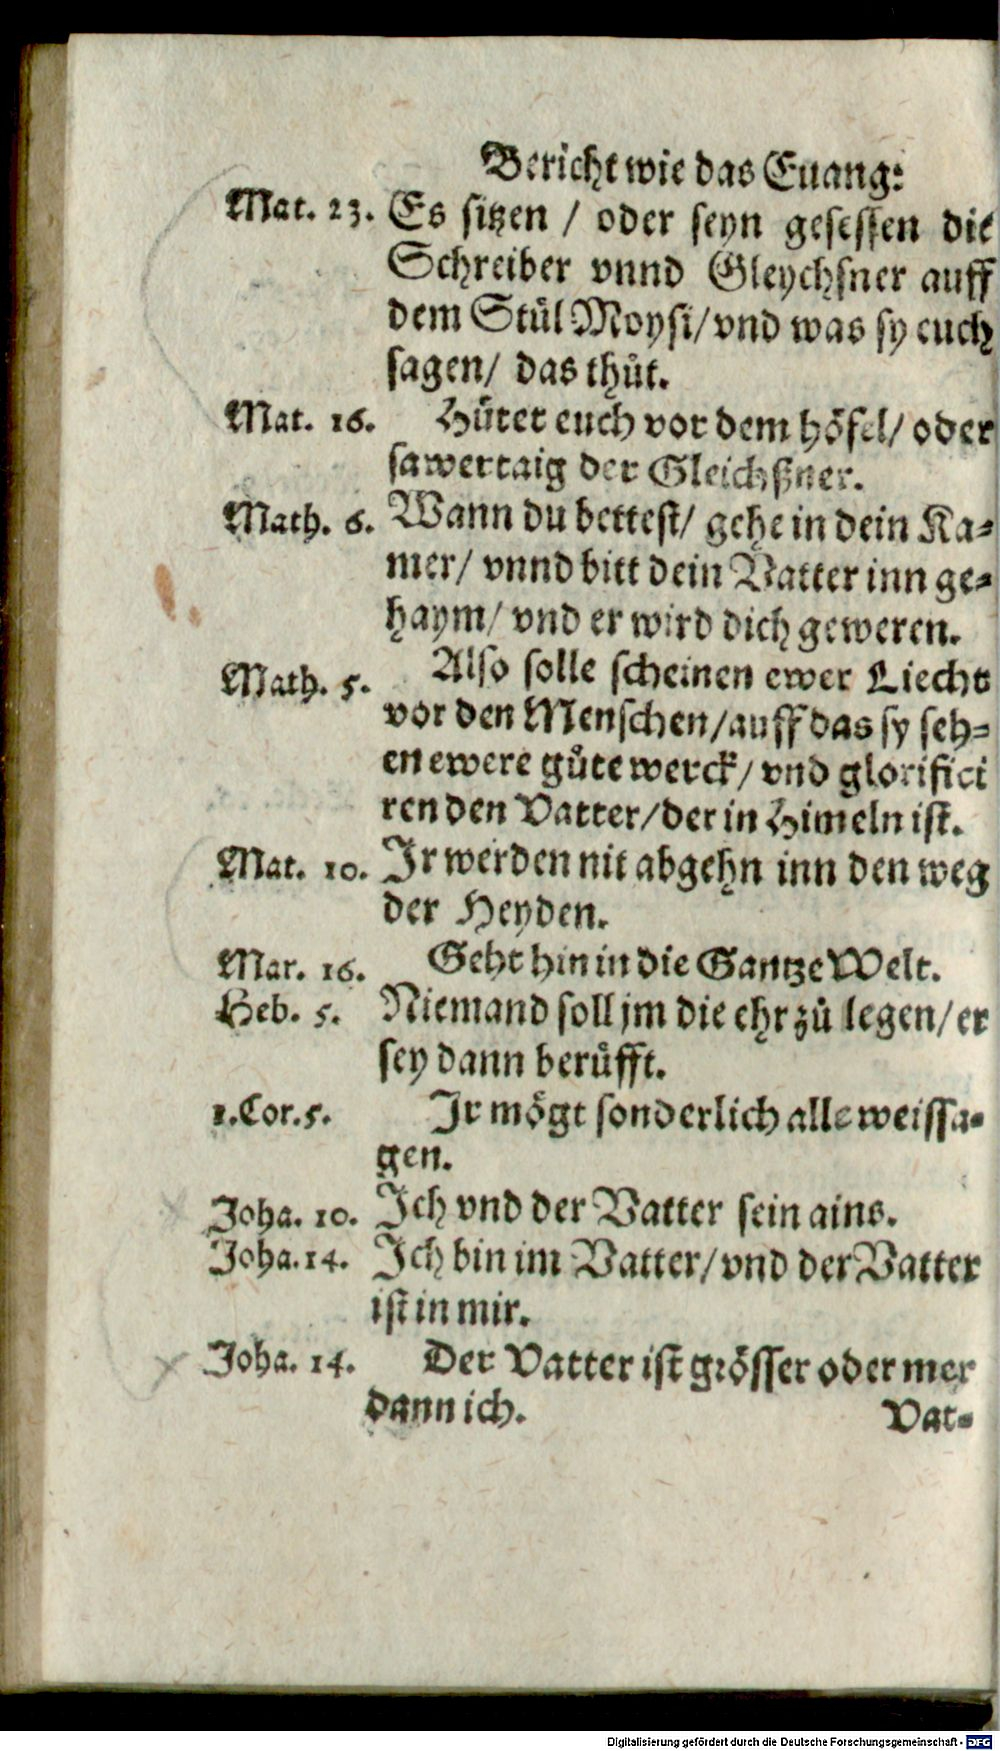 Bericht wie das Euang:
Mat. 23. Es sitzen / oder seyn gesessen die
Schreiber vnnd Gleychsner auff
dem Stůl Moysi/ vnd was sy euch
sagen/ das thůt.
Mat. 16. Hütet euch vor dem höfel/ oder
sawertaig der Gleichßner.
Math. 6. Wann du bettest/ gehe in dein Ka-
mer/ vnnd bitt dein Vatter inn ge-
haym/ vnd er wird dich geweren.
Math. 5. Also solle scheinen ewer Liecht
vor den Menschen/ auff das sy seh-
en ewere gůte werck/ vnd glorifici
ren den Vatter/ der in Himeln ist.
Mat. 10. Jr werden nit abgehn inn den weg
der Heyden.
Mar. 16. Geht hin in die Gantze Welt.
Heb. 5. Niemand soll jm die ehr zů legen/ er
sey dann berůfft.
1.Cor.5. Jr mögt sonderlich alle weissa-
gen.
Joha. 10. Jch vnd der Vatter sein ains.
Joha. 14. Jch bin im Vatter/ vnd der Vatter
ist in mir.
Joha. 14. Der Vatter ist grösser oder mer
dann ich.
Vat-
Digitalisierung gefördert durch die Deutsche Forschungsgemeinschaft - DFG